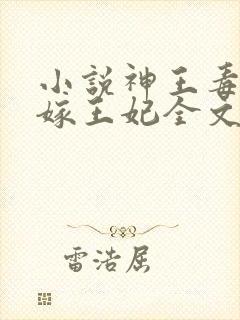 小説神王毒
嫁王妃全文
雷浩屈